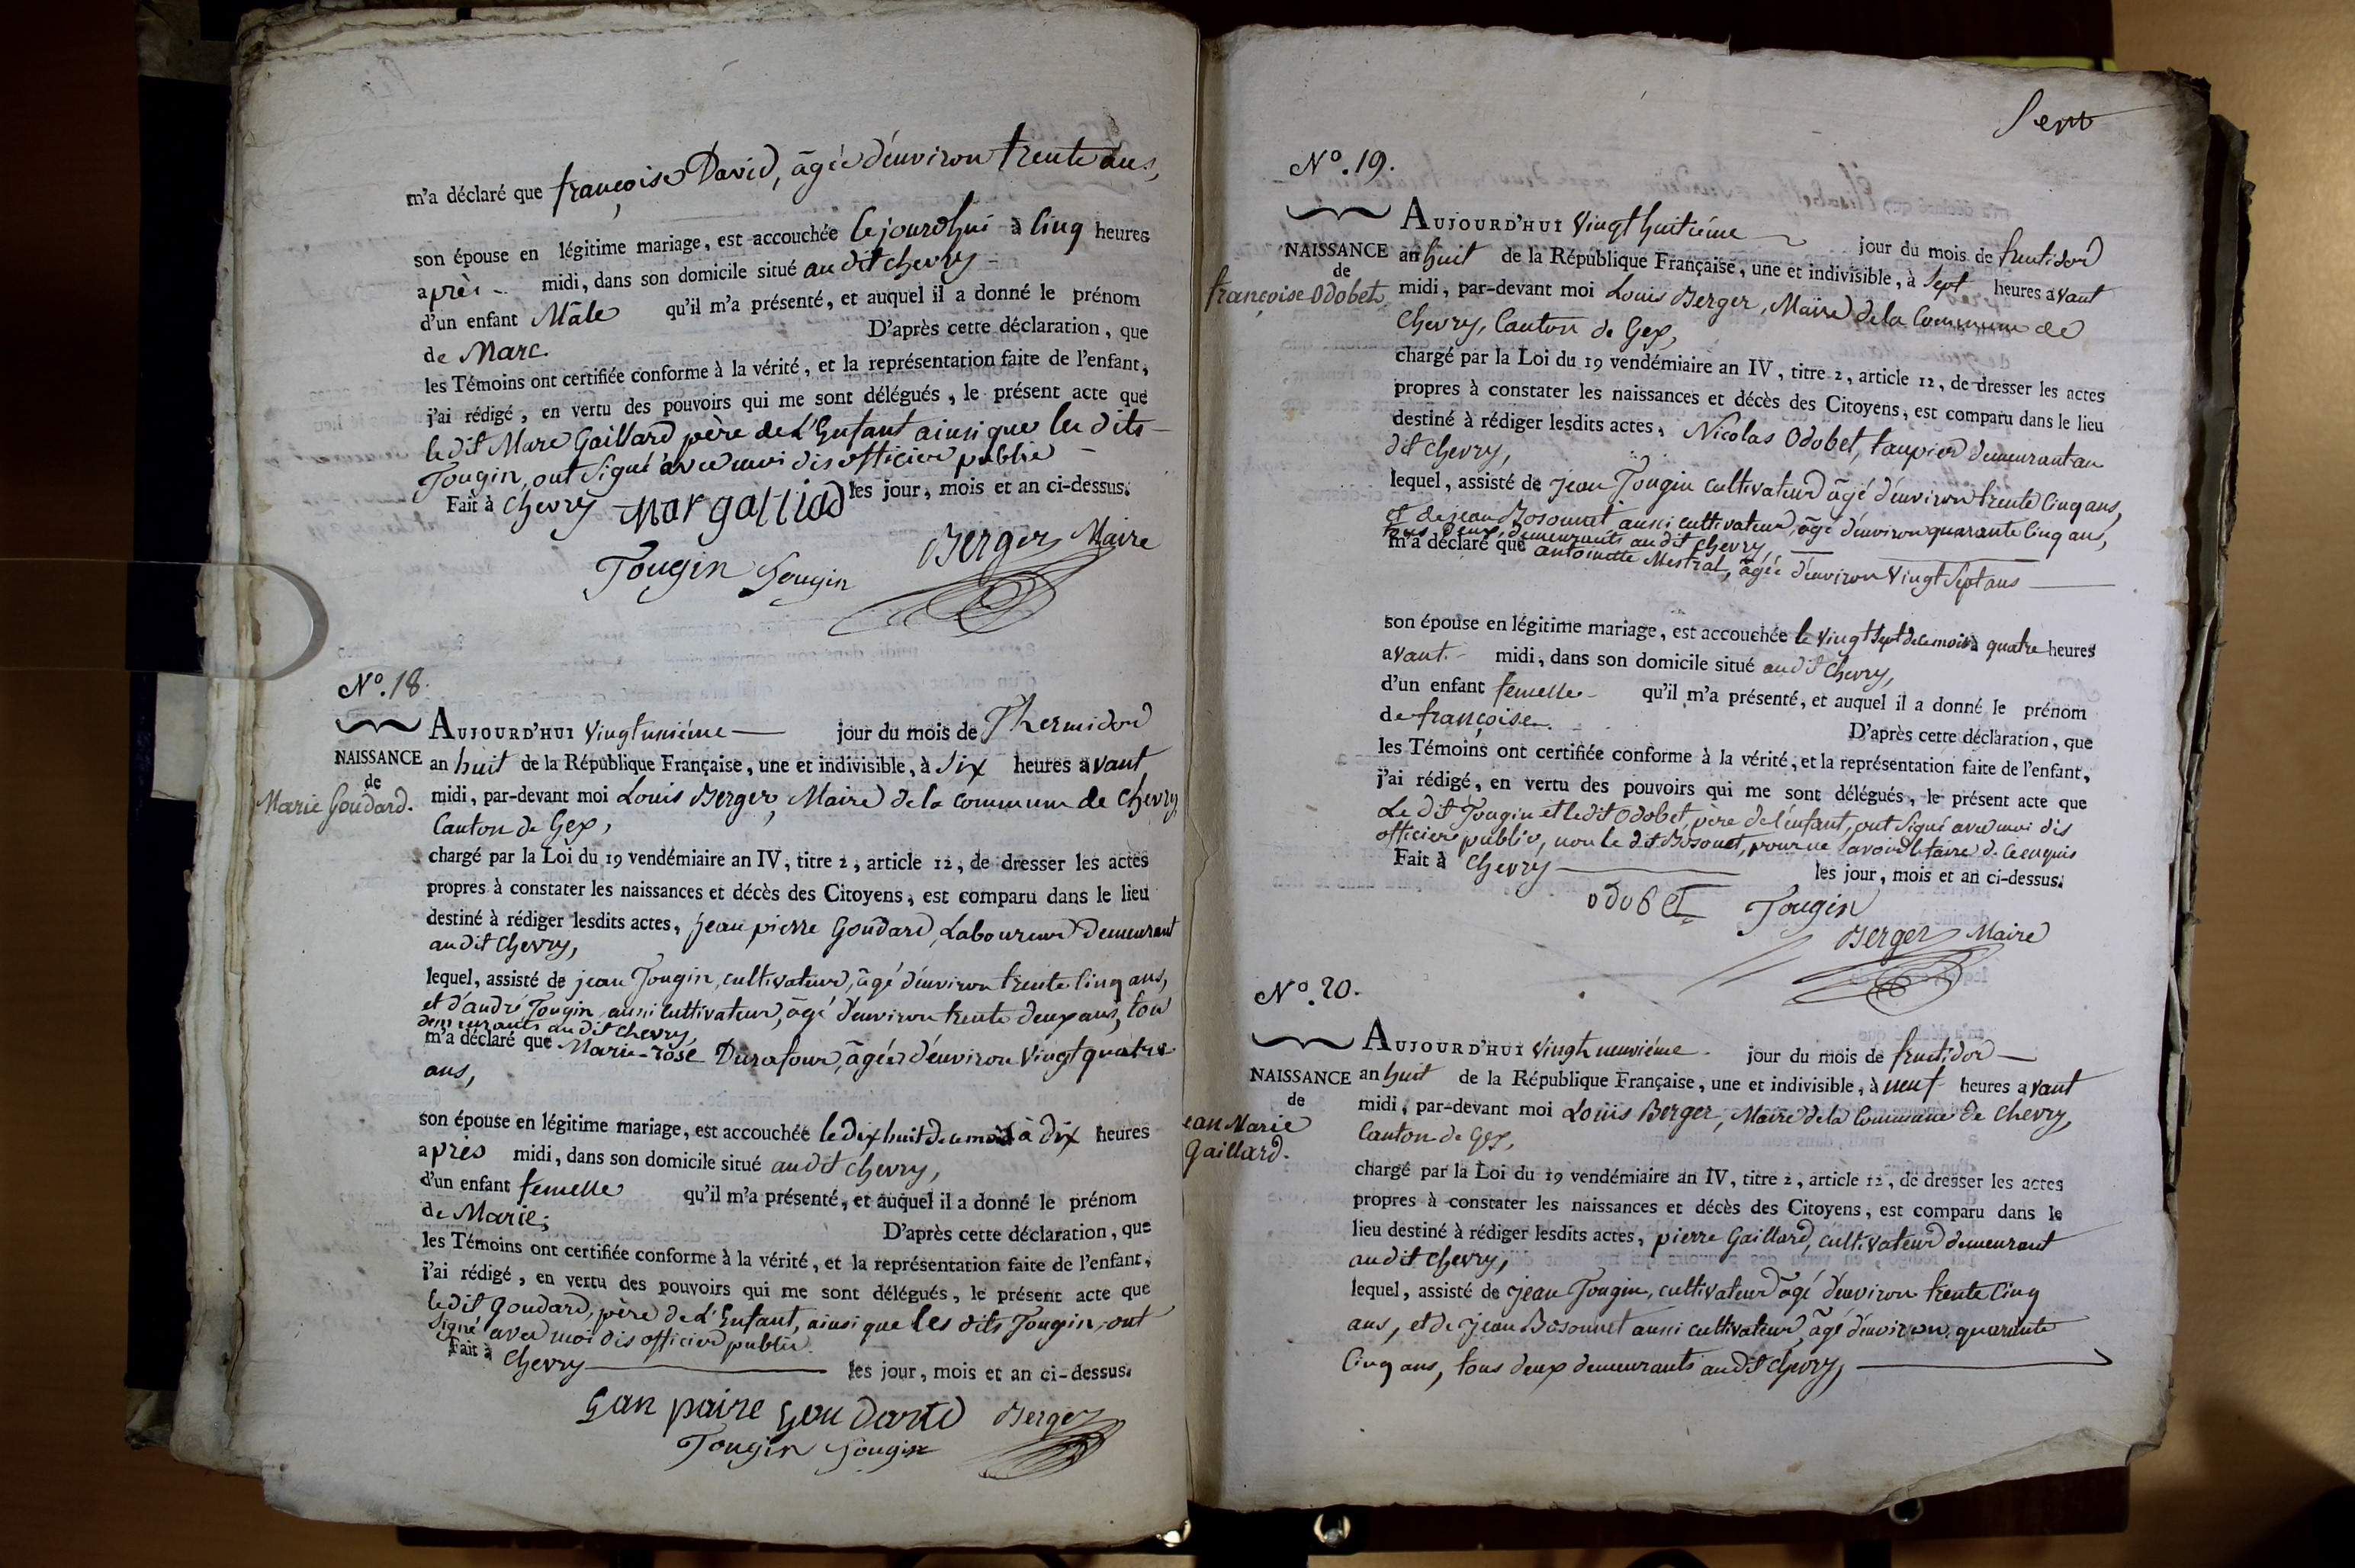 m'a déclaré que françoise David, âgée d'environ trente ans,
son épouse en légitime mariage, est accouchée cejourdhui à cinq heures
après midi, dans son domicile situé au dit chevry
d'un enfant Mâle qu'il m'a présenté, et auquel il a donné le prénom
de Marc. D'après cette déclaration, que
les Témoins ont certifiée conforme à la vérité, et la représentation faite de l'enfant,
j'ai rédigé, en vertu des pouvoirs qui me sont délégués, le présent acte que
le dit Marc Gaillard père de L'Enfant ainsi que les dits
Tougin, ont signé avec moi dis officier public
Fait à Chevry les jour, mois et an ci-dessus.
Berger Maire
Tougin Tougin
N°. 18.
AUJOURD'HUI vingtunième jour du mois de Thermidor
NAISSANCE an huit de la République Française, une et indivisible, à six heures avant
de
Marie Goudard. midi, par-devant moi Louis Berger, Maire de la commune de Chevry
Canton de Gex,
chargé par la Loi du 19 vendémiaire an IV, titre 2, article 12, de dresser les actes
propres à constater les naissances et décès des Citoyens, est comparu dans le lieu
destiné à rédiger lesdits actes, jean pierre Goudard, Laboureur demeurant
au dit Chevry,
lequel, assisté de jean Tougin, cultivateur, âgé d'environ trente cinq ans,
et d'andré Tougin aussi cultivateur, âgé d'environ trente deux ans, tous
demeurants au dit Chevry,
m'a déclaré que Marie-rose Durafour, âgée d'environ vingt quatre
ans,
son épouse en légitime mariage, est accouchée le dix huit de ce mois à dix heures
après midi, dans son domicile situé au dit chevry,
d'un enfant femelle qu'il m'a présenté, et auquel il a donné le prénom
de Marie; D'après cette déclaration, que
les Témoins ont certifiée conforme à la vérité, et la représentation faite de l'enfant,
j'ai rédigé, en vertu des pouvoirs qui me sont délégués, le présent acte que
le dit Goudard, père de L'Enfant, ainsi que les dits Tougin, ont
signé avec moi dis officier public.
Fait à Chevry les jour, mois et an ci-dessus.
Berger
Tougin Tougin
N°. 19.
AUJOURD'HUI vingt huitième jour du mois de fructidor
NAISSANCE an huit de la République Française, une et indivisible, à sept heures avant
de
françoise Odobet, midi, par-devant moi Louis Berger, Maire de la Commune de
Chevry, Canton de Gex,
chargé par la Loi du 19 vendémiaire an IV, titre 2, article 12, de dresser les actes
propres à constater les naissances et décès des Citoyens, est comparu dans le lieu
destiné à rédiger lesdits actes, Nicolas Odobet, taupier demeurant au
dit Chevry,
lequel, assisté de jean Tougin cultivateur âgé d'environ trente cinq ans,
et de jean Bosonnet aussi cultivateur, âgé d'environ quarante cinq ans,
tous deux demeurants au dit Chevry,
m'a déclaré que antoinette Mestral, âgée d'environ vingt sept ans
son épouse en légitime mariage, est accouchée le vingt sept de ce mois à quatre heures
avant midi, dans son domicile situé au dit Chevry,
d'un enfant femelle qu'il m'a présenté, et auquel il a donné le prénom
de françoise. D'après cette déclaration, que
les Témoins ont certifiée conforme à la vérité, et la représentation faite de l'enfant,
j'ai rédigé, en vertu des pouvoirs qui me sont délégués, le présent acte que
Le dit Tougin et le dit Odobet, père de l'enfant, ont signé avec moi dis
officier public, non le dit Bosonet, pour ne savoir le faire d. ce enquis
Fait à Chevry les jour, mois et an ci-dessus.
odobet Tougin
Berger Maire
N°. 20.
AUJOURD'HUI vingt neuvième jour du mois de fructidor
NAISSANCE an huit de la République Française, une et indivisible, à neuf heures avant
de midi, par-devant moi Louis Berger, Maire de la Commune de Chevry,
ean Marie
Gaillard. Canton de Gex,
chargé par la Loi du 19 vendémiaire an IV, titre 2, article 12, de dresser les actes
propres à constater les naissances et décès des Citoyens, est comparu dans le
lieu destiné à rédiger lesdits actes, pierre Gaillard, cultivateur demeurant
au dit Chevry,
lequel, assisté de jean Tougin, cultivateur âgé d'environ trente cinq
ans, et de jean Bosonnet aussi cultivateur, âgé d'environ quarante
cinq ans, tous deux demeurants au dit Chevry,